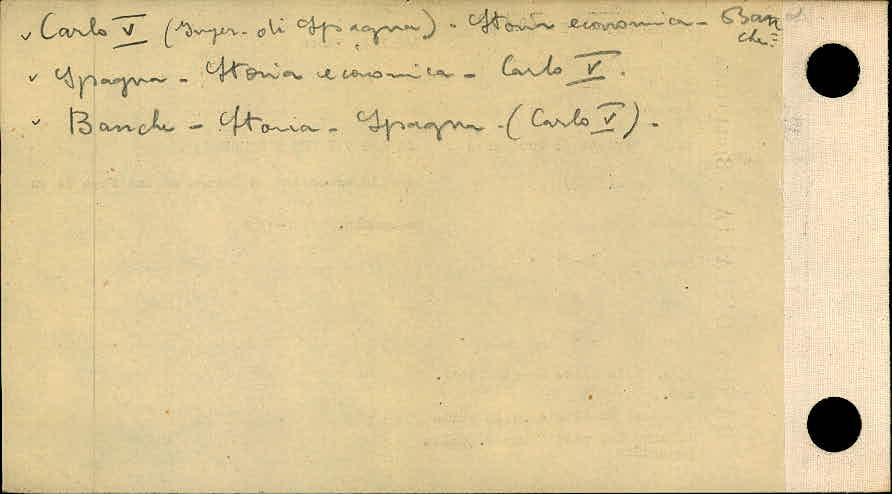 ✓ Carlo V (Imper. di Spagna) - Storia economica - Ban
che.
✓ Spagna - Storia economica - Carlo V.
✓ Banche - Storia - Spagna - (Carlo V) -